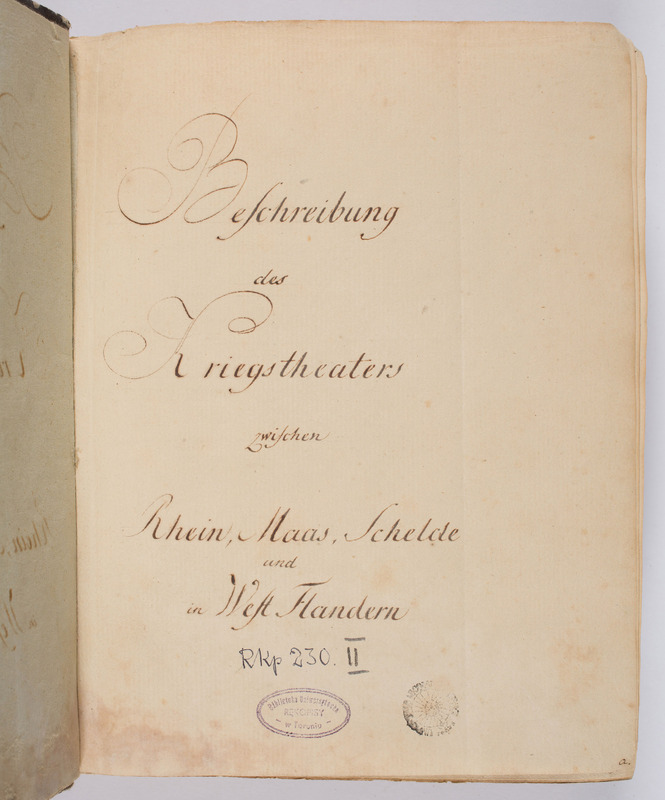 Beſchreibung
des
Kriegstheaters
zwiſchen
Rhein, Maas, Schelde
und
in Weſt Flandern
Rkp 230. II
Biblioteka Uniwersytecka
RĘKOPISY
w Toruniu
a.